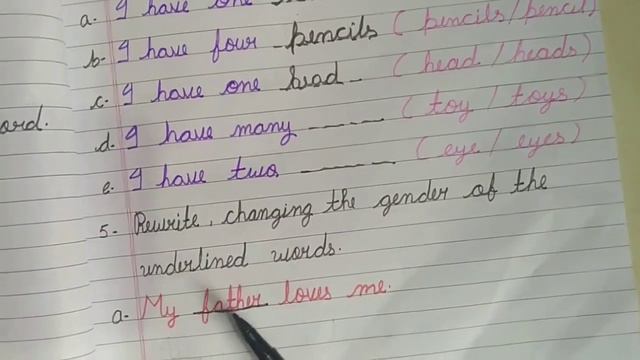 a. I have one
b. I have four pencils (pencils/pencil)
c. I have one head (head / heads)
ord.
d. I have many ______ (toy / toys)
e. I have two ______ (eye / eyes)
5. Rewrite, changing the gender of the
underlined words.
a. My father loves me.